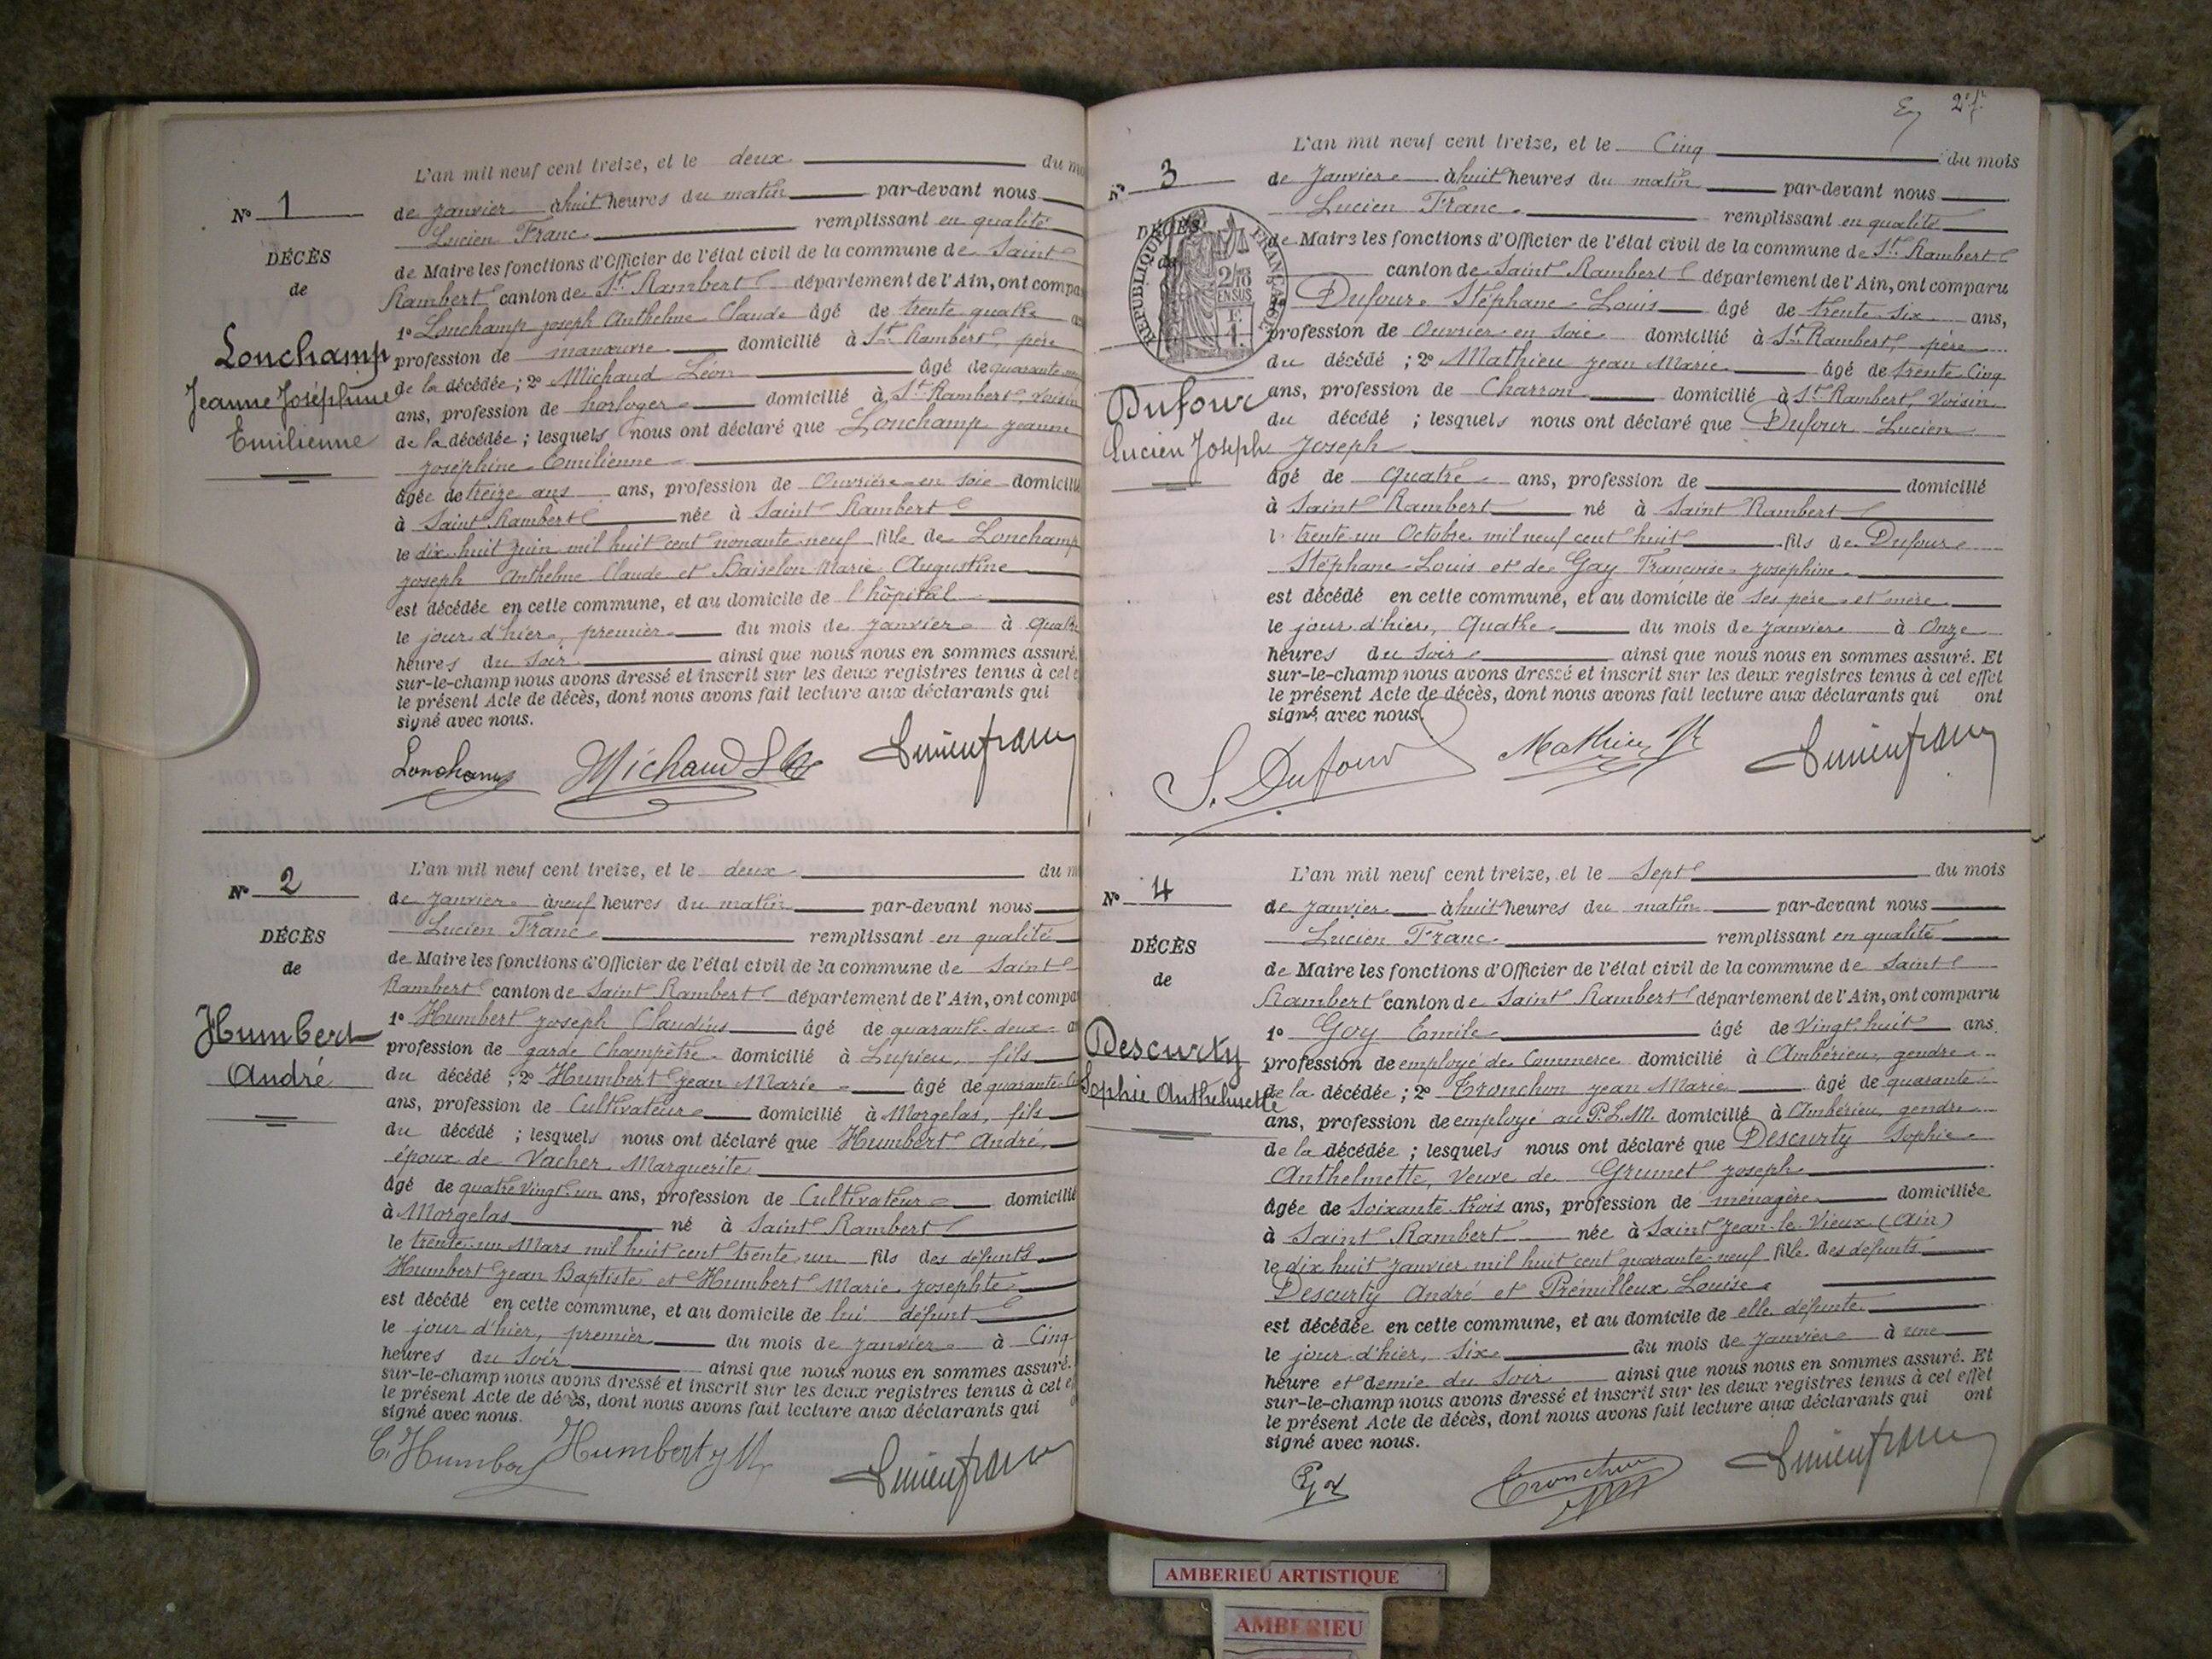 N° 1
DÉCÈS
de
Lonchamp
Jeanne Joséphine
Emilienne
L'an mil neuf cent treize, et le deux du
de Janvier à huit heures du matin par-devant nous
Lucien Franc remplissant en qualité
de Maire les fonctions d'Officier de l'état civil de la commune de Saint
Rambert canton de St. Rambert département de l'Ain, ont compa
1° Lonchamp Joseph Anthelme Claude âgé de trente quatre
profession de manœuvre domicilié à St. Rambert, père
de la décédée ; 2° Michaud Léon âgé de quarante
ans, profession de horloger domicilié à St. Rambert, voisin
de la décédée ; lesquels nous ont déclaré que Lonchamp Jeanne
Joséphine Emilienne
âgée de treize ans ans, profession de Ouvrière en soie domicili
à Saint Rambert née à Saint Rambert
le dix huit juin mil huit cent nonante neuf fille de Lonchamp
Joseph Anthelme Claude et Marie Augustine
est décédée en cette commune, et au domicile de l'hôpital
le jour d'hier, premier du mois de Janvier à quatre
heures du soir ainsi que nous nous en sommes assuré.
sur-le-champ nous avons dressé et inscrit sur les deux registres tenus à cet e
le présent Acte de décès, dont nous avons fait lecture aux déclarants qui
signé avec nous.
Lonchamp Michaud Lucien franc
N° 2
DÉCÈS
de
Humbert
André
L'an mil neuf cent treize, et le deux du m
de Janvier à neuf heures du matin par-devant nous
Lucien Franc remplissant en qualité
de Maire les fonctions d'Officier de l'état civil de la commune de Saint
Rambert canton de Saint Rambert département de l'Ain, ont compa
1° Humbert Joseph Claudius âgé de quarante-deux an
profession de garde champêtre domicilié à Lupieu, fils
du décédé ; 2° Humbert Jean Marie âgé de quarante
ans, profession de Cultivateur domicilié à Morgelas, fils
du décédé ; lesquels nous ont déclaré que Humbert André,
époux de Vacher Marguerite
âgé de quatre vingt un ans, profession de Cultivateur domicilié
à Morgelas né à Saint Rambert
le trente un Mars mil huit cent trente un fils des défunts
Humbert Jean Baptiste et Humbert Marie Josephte
est décédé en cette commune, et au domicile de lui défunt
le jour d'hier, premier du mois de Janvier à Cinq
heures du Soir ainsi que nous nous en sommes assuré.
sur-le-champ nous avons dressé et inscrit sur les deux registres tenus à cet e
le présent Acte de décès, dont nous avons fait lecture aux déclarants qui
signé avec nous.
C. Humbert Humbert J M Lucien franc
2
N° 3
DÉCÈS
de
RÉPUBLIQUE FRANÇAISE
2/10
EN SUS
1 F.
Dufour
Lucien Joseph
L'an mil neuf cent treize, et le Cinq du mois
de Janvier à huit heures du matin par-devant nous
Lucien Franc remplissant en qualité
de Maire les fonctions d'Officier de l'état civil de la commune de St. Rambert
canton de Saint Rambert département de l'Ain, ont comparu
1° Dufour Stéphane Louis âgé de trente-six ans,
profession de Ouvrier en soie domicilié à St. Rambert, père
du décédé ; 2° Mathieu Jean Marie âgé de trente cinq
ans, profession de Charron domicilié à St. Rambert, Voisin
du décédé ; lesquels nous ont déclaré que Dufour Lucien
Joseph
âgé de quatre ans, profession de domicilié
à Saint Rambert né à Saint Rambert
l. trente-un Octobre mil neuf cent huit fils de Dufour
Stéphane Louis et de Gay Françoise Joséphine
est décédé en cette commune, et au domicile de ses père et mère
le jour d'hier, Quatre du mois de Janvier à Onze
heures du soir ainsi que nous nous en sommes assuré. Et
sur-le-champ nous avons dressé et inscrit sur les deux registres tenus à cet effet
le présent Acte de décès, dont nous avons fait lecture aux déclarants qui ont
signé avec nous.
S. Dufour Mathieu Lucien franc
N° 4
DÉCÈS
de
Descurty
Sophie Anthelmette
L'an mil neuf cent treize, et le Sept du mois
de Janvier à huit heures du matin par-devant nous
Lucien Franc remplissant en qualité
de Maire les fonctions d'Officier de l'état civil de la commune de Saint
Rambert canton de Saint Rambert département de l'Ain, ont comparu
1° Goy Emile âgé de Vingt-huit ans.
profession de employé de Commerce domicilié à Ambérieu, gendre
de la décédée ; 2° Tronchon Jean Marie âgé de quarante
ans, profession de employé au P.L.M. domicilié à Ambérieu, gendre
de la décédée ; lesquels nous ont déclaré que Descurty Sophie
Anthelmette, Veuve de Grumet Joseph
âgée de Soixante trois ans, profession de ménagère domiciliée
à Saint Rambert née à Saint Jean-le-Vieux (Ain)
le dix huit Janvier mil huit cent quarante-neuf fille des défunts
Descurty André et Prémilleux Louise
est décédée en cette commune, et au domicile de elle défunte
le jour d'hier, six du mois de Janvier à une
heure et demie du Soir ainsi que nous nous en sommes assuré. Et
sur-le-champ nous avons dressé et inscrit sur les deux registres tenus à cet effet
le présent Acte de décès, dont nous avons fait lecture aux déclarants qui ont
signé avec nous.
Goy Tronchon Lucien franc
AMBERIEU ARTISTIQUE
AMBERIEU